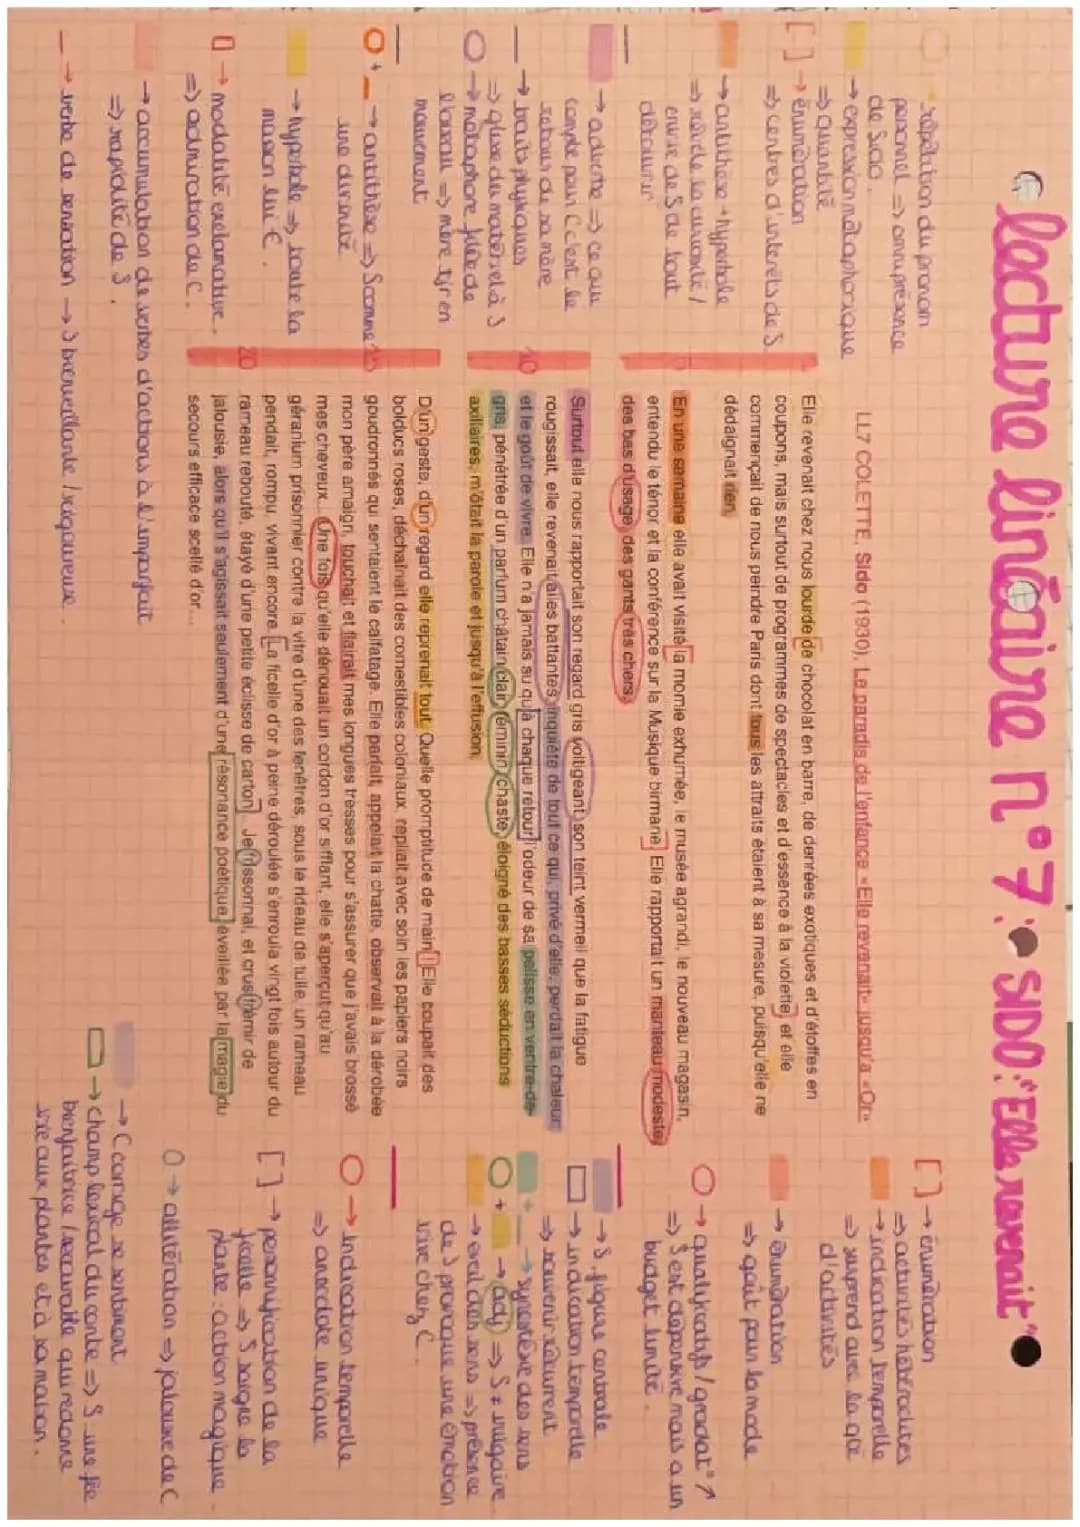 lecture linéaire n°7: SIDO: "Elle revenait"
→ répétition du pronom
personnel => omniprésence
de Sido.
→ expression métaphorique
=> quantité
[ ] → énumération
=> centres d'intérêts de S.
→ antithèse + hyperbole
=> révèle la curiosité /
envie de S de tout
découvrir
→ adverbe => ce qui
compte pour C c'est le
retour de sa mère
→ traits physiques
=> gluxe de matériel à S
→ métaphore filée de
l'oiseau => mère tjr en
mouvement
+ → antithèse => S comme
une divinité
→ hyperbole => toute la
maison lui C.
→ modalité exclamative.
=> admiration de C.
→ accumulation de verbes d'actions à l'imparfait
=> rapidité de S.
→ verbe de sensation → S bienveillante / rigoureuse.
LL7 COLETTE, Sido (1930), Le paradis de l'enfance « Elle revenait» jusqu'a «Or»
Elle revenait chez nous lourde de chocolat en barre, de denrées exotiques et d'étoffes en
coupons, mais surtout de programmes de spectacles et d'essence à la violette, et elle
commençait de nous peindre Paris dont tous les attraits étaient à sa mesure, puisqu'elle ne
dédaignait rien.
5
En une semaine elle avait visité la momie exhumée, le musée agrandi, le nouveau magasin,
entendu le ténor et la conférence sur la Musique birmane. Elle rapportait un manteau modeste,
des bas d'usage, des gants très chers.
Surtout elle nous rapportait son regard gris voltigeant, son teint vermeil que la fatigue
rougissait, elle revenait ailes battantes, inquiète de tout ce qui, privé d'elle, perdait la chaleur
10 et le goût de vivre. Elle n'a jamais su qu'à chaque retour l'odeur de sa pelisse en ventre-de-
gris, pénétrée d'un parfum châtain clair, féminin, chaste, éloigné des basses séductions
axillaires, m'ôtait la parole et jusqu'à l'effusion.
D'un geste, d'un regard elle reprenait tout. Quelle promptitude de main ! Elle coupait des
bolducs roses, déchaînait des comestibles coloniaux, repliait avec soin les papiers noirs
15 goudronnés qui sentaient le calfatage. Elle parlait, appelait la chatte, observait à la dérobée
mon père amaigri, touchait et flairait mes longues tresses pour s'assurer que j'avais brossé
mes cheveux... Une fois qu'elle dénouait un cordon d'or sifflant, elle s'aperçut qu'au
géranium prisonnier contre la vitre d'une des fenêtres, sous le rideau de tulle, un rameau
pendait, rompu, vivant encore. La ficelle d'or à peine déroulée s'enroula vingt fois autour du
20 rameau rebouté, étayé d'une petite éclisse de carton... Je frissonnai, et crus frémir de
jalousie, alors qu'il s'agissait seulement d'une résonance poétique, éveillée par la magie du
secours efficace scellé d'or...
[ ] → énumération
=> activités hétéroclites
→ indication temporelle
=> surprend avec la qté
d'activités
→ énumération
=> goût pour la mode
→ qualificatifs / gradat° ↗
=> S est dépensive mais a un
budget limité.
→ S. figure centrale
→ indication temporelle
=> souvenir récurrent
+ → synesthésie des sens
+ → adj => S ≠ vulgaire
→ éveil des sens => présence
de S provoque une émotion
vive chez C.
→ indication temporelle
=> anecdote unique
[ ] → personnification de la
ficelle => S soigne la
plante : action magique.
→ allitération => jalouse de C
→ C corrige se sentiment
→ champ lexical du conte => S une fée
bienfaitrice / secourable qui redonne
vie aux plantes et à sa maison.